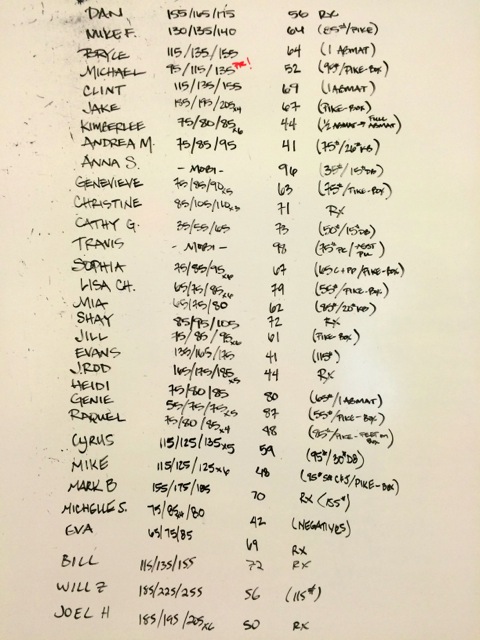 DAN 155/165/175 56 RX
MIKE F. 130/135/140 64 (85#/PIKE)
BRYCE 115/135/155 64 (1 ABMAT)
MICHAEL 95/115/135 PR! 52 (95#/PIKE-BOX)
CLINT 115/135/155 69 (1 ABMAT)
JAKE 185/195/205x4 67 (PIKE-BOX)
KIMBERLEE 75/80/85x6 44 (½ ABMAT→ FULL ABMAT)
ANDREA M. 75/85/95 41 (75#/26#KB)
ANNA S. - MOBI - 96 (35#/15#DB)
GENEVIEVE 75/85/90x5 63 (75#/PIKE-BOX)
CHRISTINE 85/105/110x3 71 RX
CATHY G. 35/55/65 73 (50#/15#DB)
TRAVIS - MOBI - 98 (75# PC/
SOPHIA 75/85/95x6 67 (65 C+PP/PIKE-BOX)
LISA CH. 65/75/85x6 79 (55#/PIKE-BOX)
MIA 65/75/80 62
SHAY 85/95/105 72 RX
JILL 75/85/95x6 61 (PIKE-BOX)
EVANS 135/165/175 41 (115#)
J.ROD 165/175/185x5 44 RX
HEIDI 75/80/85 80 (65#/1 ABMAT)
GENIE 55/75/75x5 87 (55#/PIKE-BOX)
RAQUEL 75/80/85x4 48 (85#/PIKE-FEET ON BOX)
CYRUS 115/125/135x5 59 (95#/30#DB)
MIKE 115/125/125x6 48 /PIKE-BOX)
MARK B 155/175/185 70 RX (155#)
MICHELLE S. 75/85x4/80 42 (NEGATIVES)
EVA 65/75/85 69 RX
BILL 115/135/155 72 RX
WILL Z 185/225/255 56 (115#)
JOEL H 185/195/205x6 50 RX